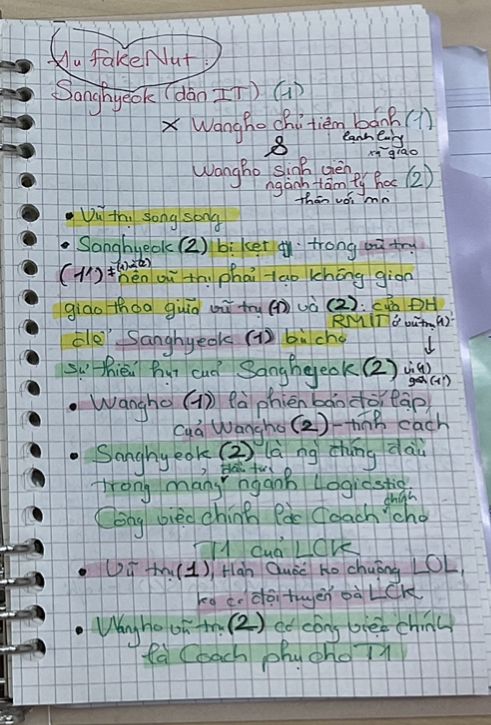 Au fakeNut:
Sanghyeok (dân IT) (1)
x Wangho chủ tiệm bánh (1)
lạnh lùng
xã giao
&
Wangho sinh viên
ngành tâm lý học (2)
thân với mn
• Vũ trụ song song
• Sanghyeok (2) bị kẹt trong vũ trụ
(1') nên vũ trụ phải tạo không gian
giao thoa giữa vũ trụ (1) và (2): của ĐH
RMIT ở vũ trụ (1)
để Sanghyeok (1) bù cho
sự thiếu hụt của Sanghyeok (2)
• Wangho (1) là phiên bản đối lập
của Wangho (2) - tính cách
• Sanghyeok (2) là ng đứng đầu
đầu tư
trong mảng ngành Logicstic
Công việc chính là Coach chính cho
T1 của LCK
• Vũ trụ (1), Hàn Quốc ko chuộng LOL,
ko có đội tuyển và LCK
• Wangho vũ trụ (2) có công việc chính
là Coach phụ cho T1